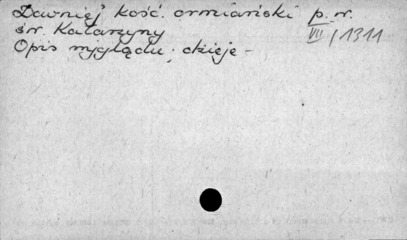 Dawniej kość. ormiański p. w.
św. Katarzyny VII/1311
Opis wyglądu; dzieje -